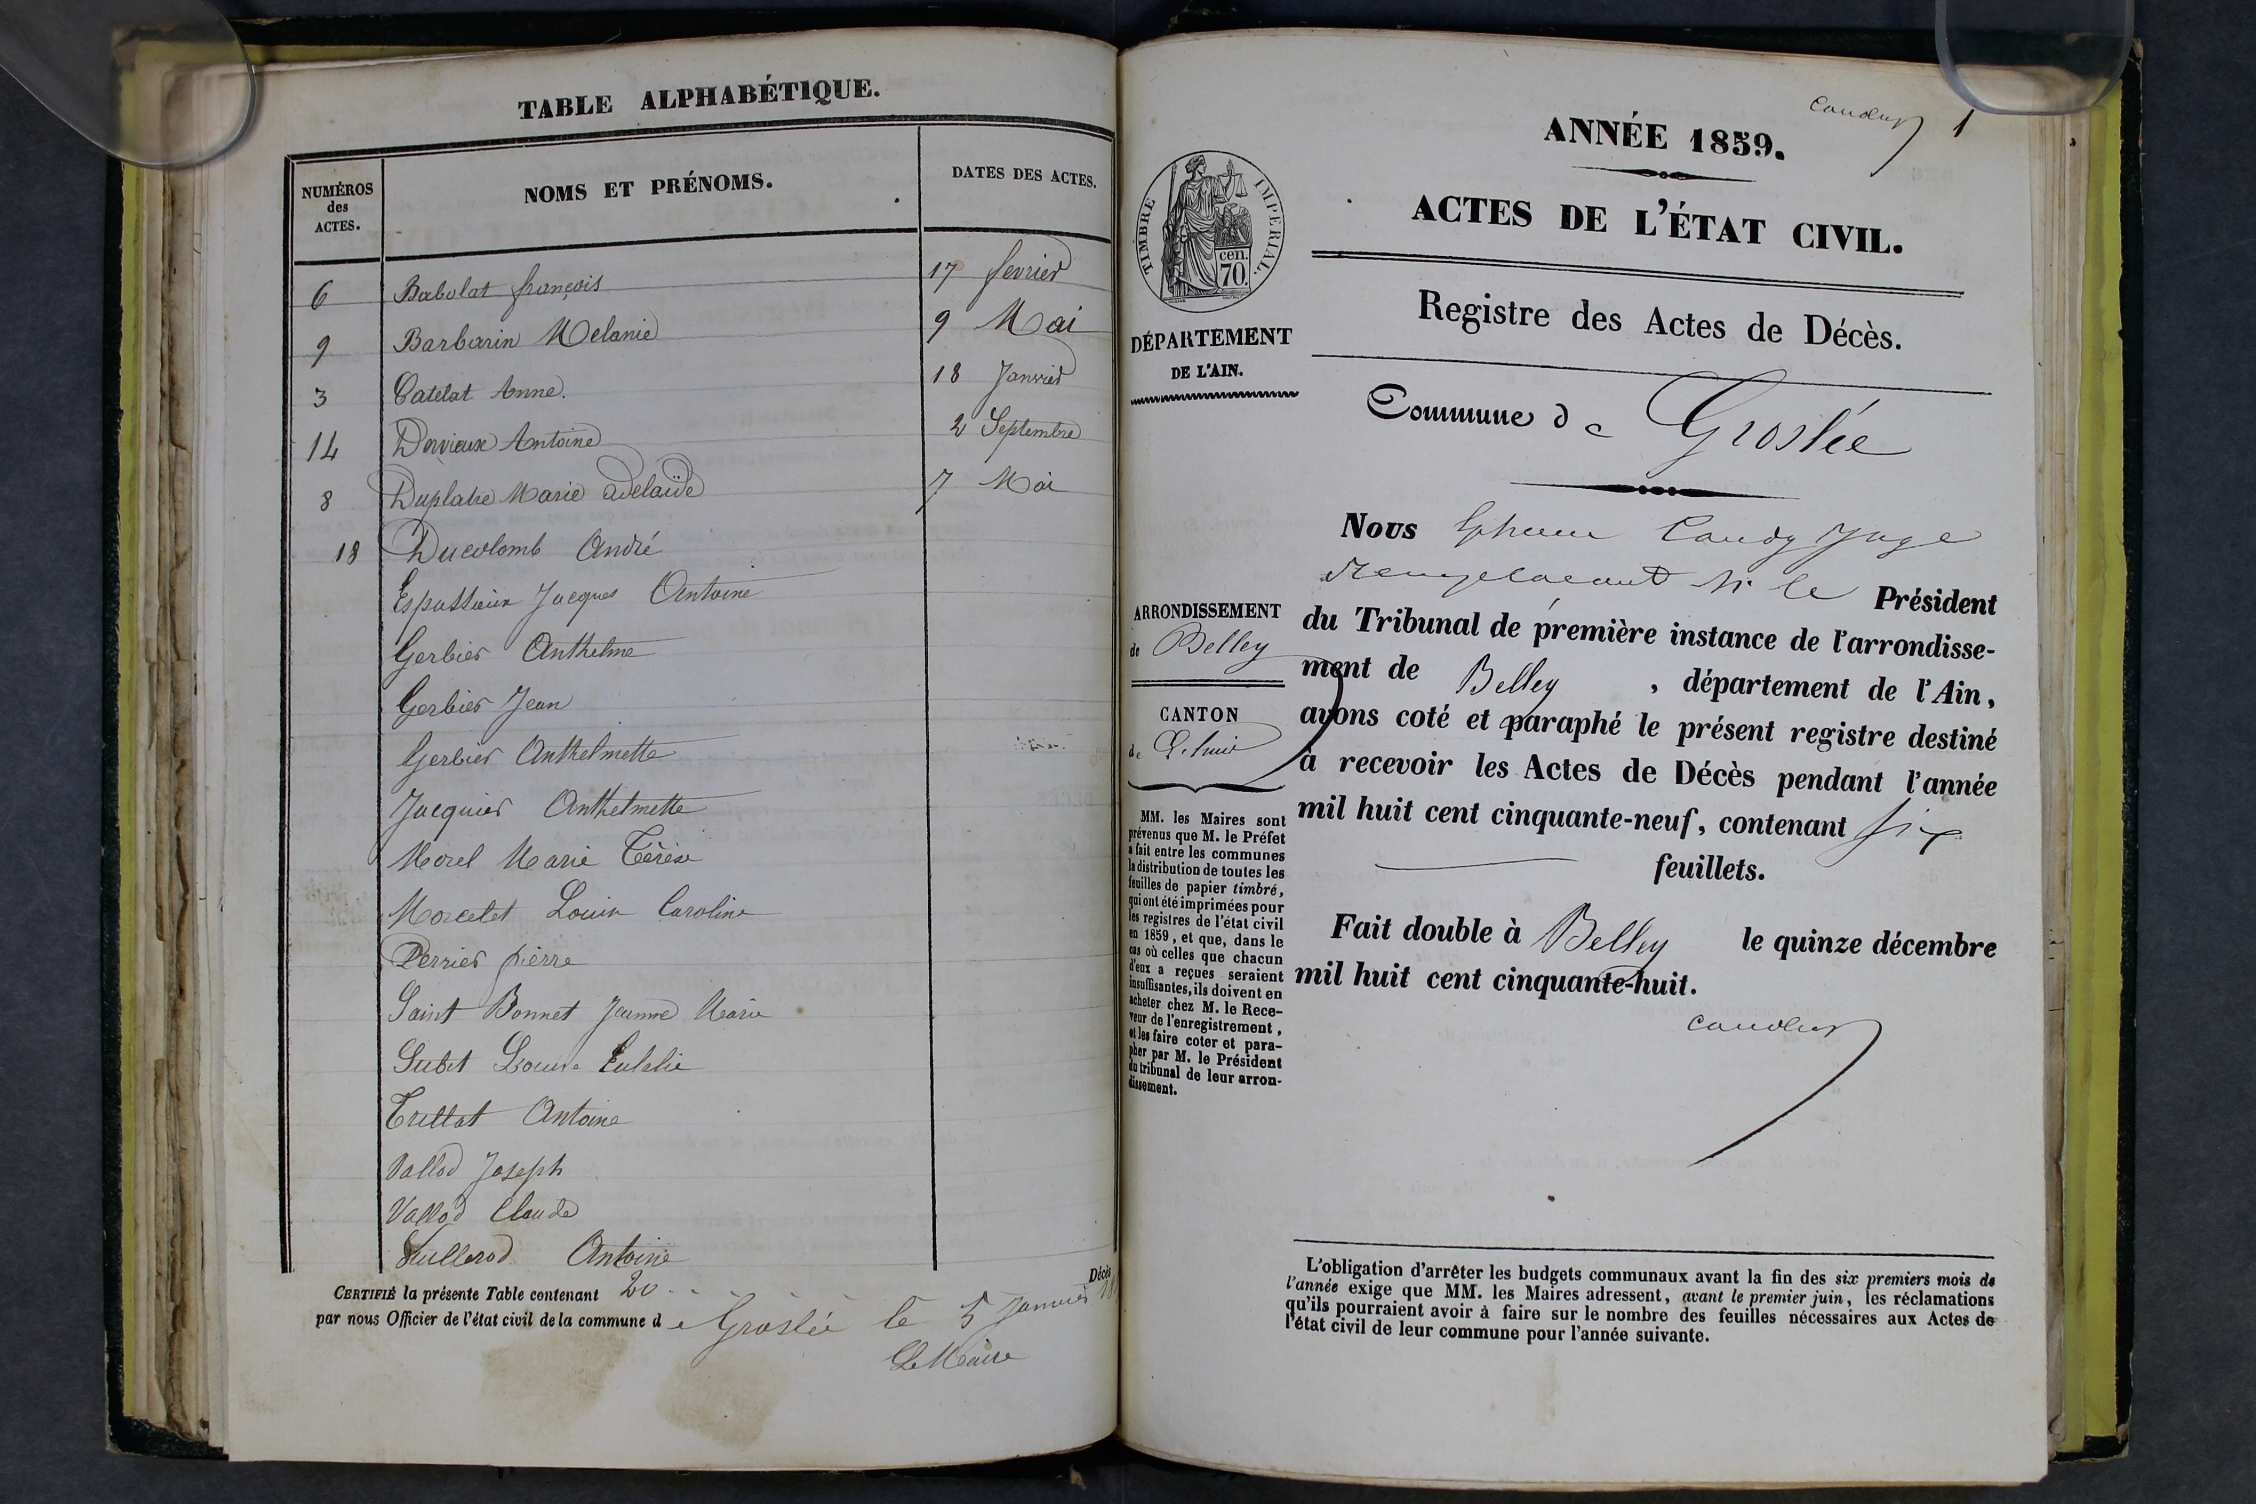 TABLE ALPHABÉTIQUE.
NUMÉROS
des
ACTES.
NOMS ET PRÉNOMS.
DATES DES ACTES.
6 Babolat françois 17 fevrier
9 Barbarin Melanie 9 Mai
3 Catelat Anne. 18 Janvier
14 Dervieux Antoine 2 Septembre
8 Duplatre Marie adelaïde 7 Mai
18 Ducolomb André
Jacques Antoine
Gerbier Anthelme
Gerbier Jean
Gerbier Anthelmette
Jacquier Anthelmette
Morel Marie Térèse
Morcelet Louise Caroline
Perrier pierre
Saint Bonnet Jeanne Marie
Subit Louise Eulalie
Trillat Antoine
Vallod Joseph
Vallod Claude
Vuillerod Antoine
Décès
CERTIFIÉ la présente Table contenant 20
par nous Officier de l'état civil de la commune de Groslée le 5 Janvier
Le Maire
1
ANNÉE 1859.
ACTES DE L'ÉTAT CIVIL.
TIMBRE IMPERIAL.
cen.
70.
Registre des Actes de Décès.
DÉPARTEMENT
DE L'AIN.
Commune de Groslée
ARRONDISSEMENT
de Belley
CANTON
de Lhuis
MM. les Maires sont
prévenus que M. le Préfet
a fait entre les communes
la distribution de toutes les
feuilles de papier timbré,
qui ont été imprimées pour
les registres de l'état civil
en 1859, et que, dans le
cas où celles que chacun
d'eux a reçues seraient
insuffisantes, ils doivent en
acheter chez M. le Rece-
veur de l'enregistrement,
et les faire coter et para-
pher par M. le Président
du tribunal de leur arron-
dissement.
Nous Candy Juge
remplacant Mr le Président
du Tribunal de première instance de l'arrondisse-
ment de Belley, département de l'Ain,
avons coté et paraphé le présent registre destiné
à recevoir les Actes de Décès pendant l'année
mil huit cent cinquante-neuf, contenant six
feuillets.
Fait double à Belley le quinze décembre
mil huit cent cinquante-huit.
L'obligation d'arrêter les budgets communaux avant la fin des six premiers mois de
l'année exige que MM. les Maires adressent, avant le premier juin, les réclamations
qu'ils pourraient avoir à faire sur le nombre des feuilles nécessaires aux Actes de
l'état civil de leur commune pour l'année suivante.